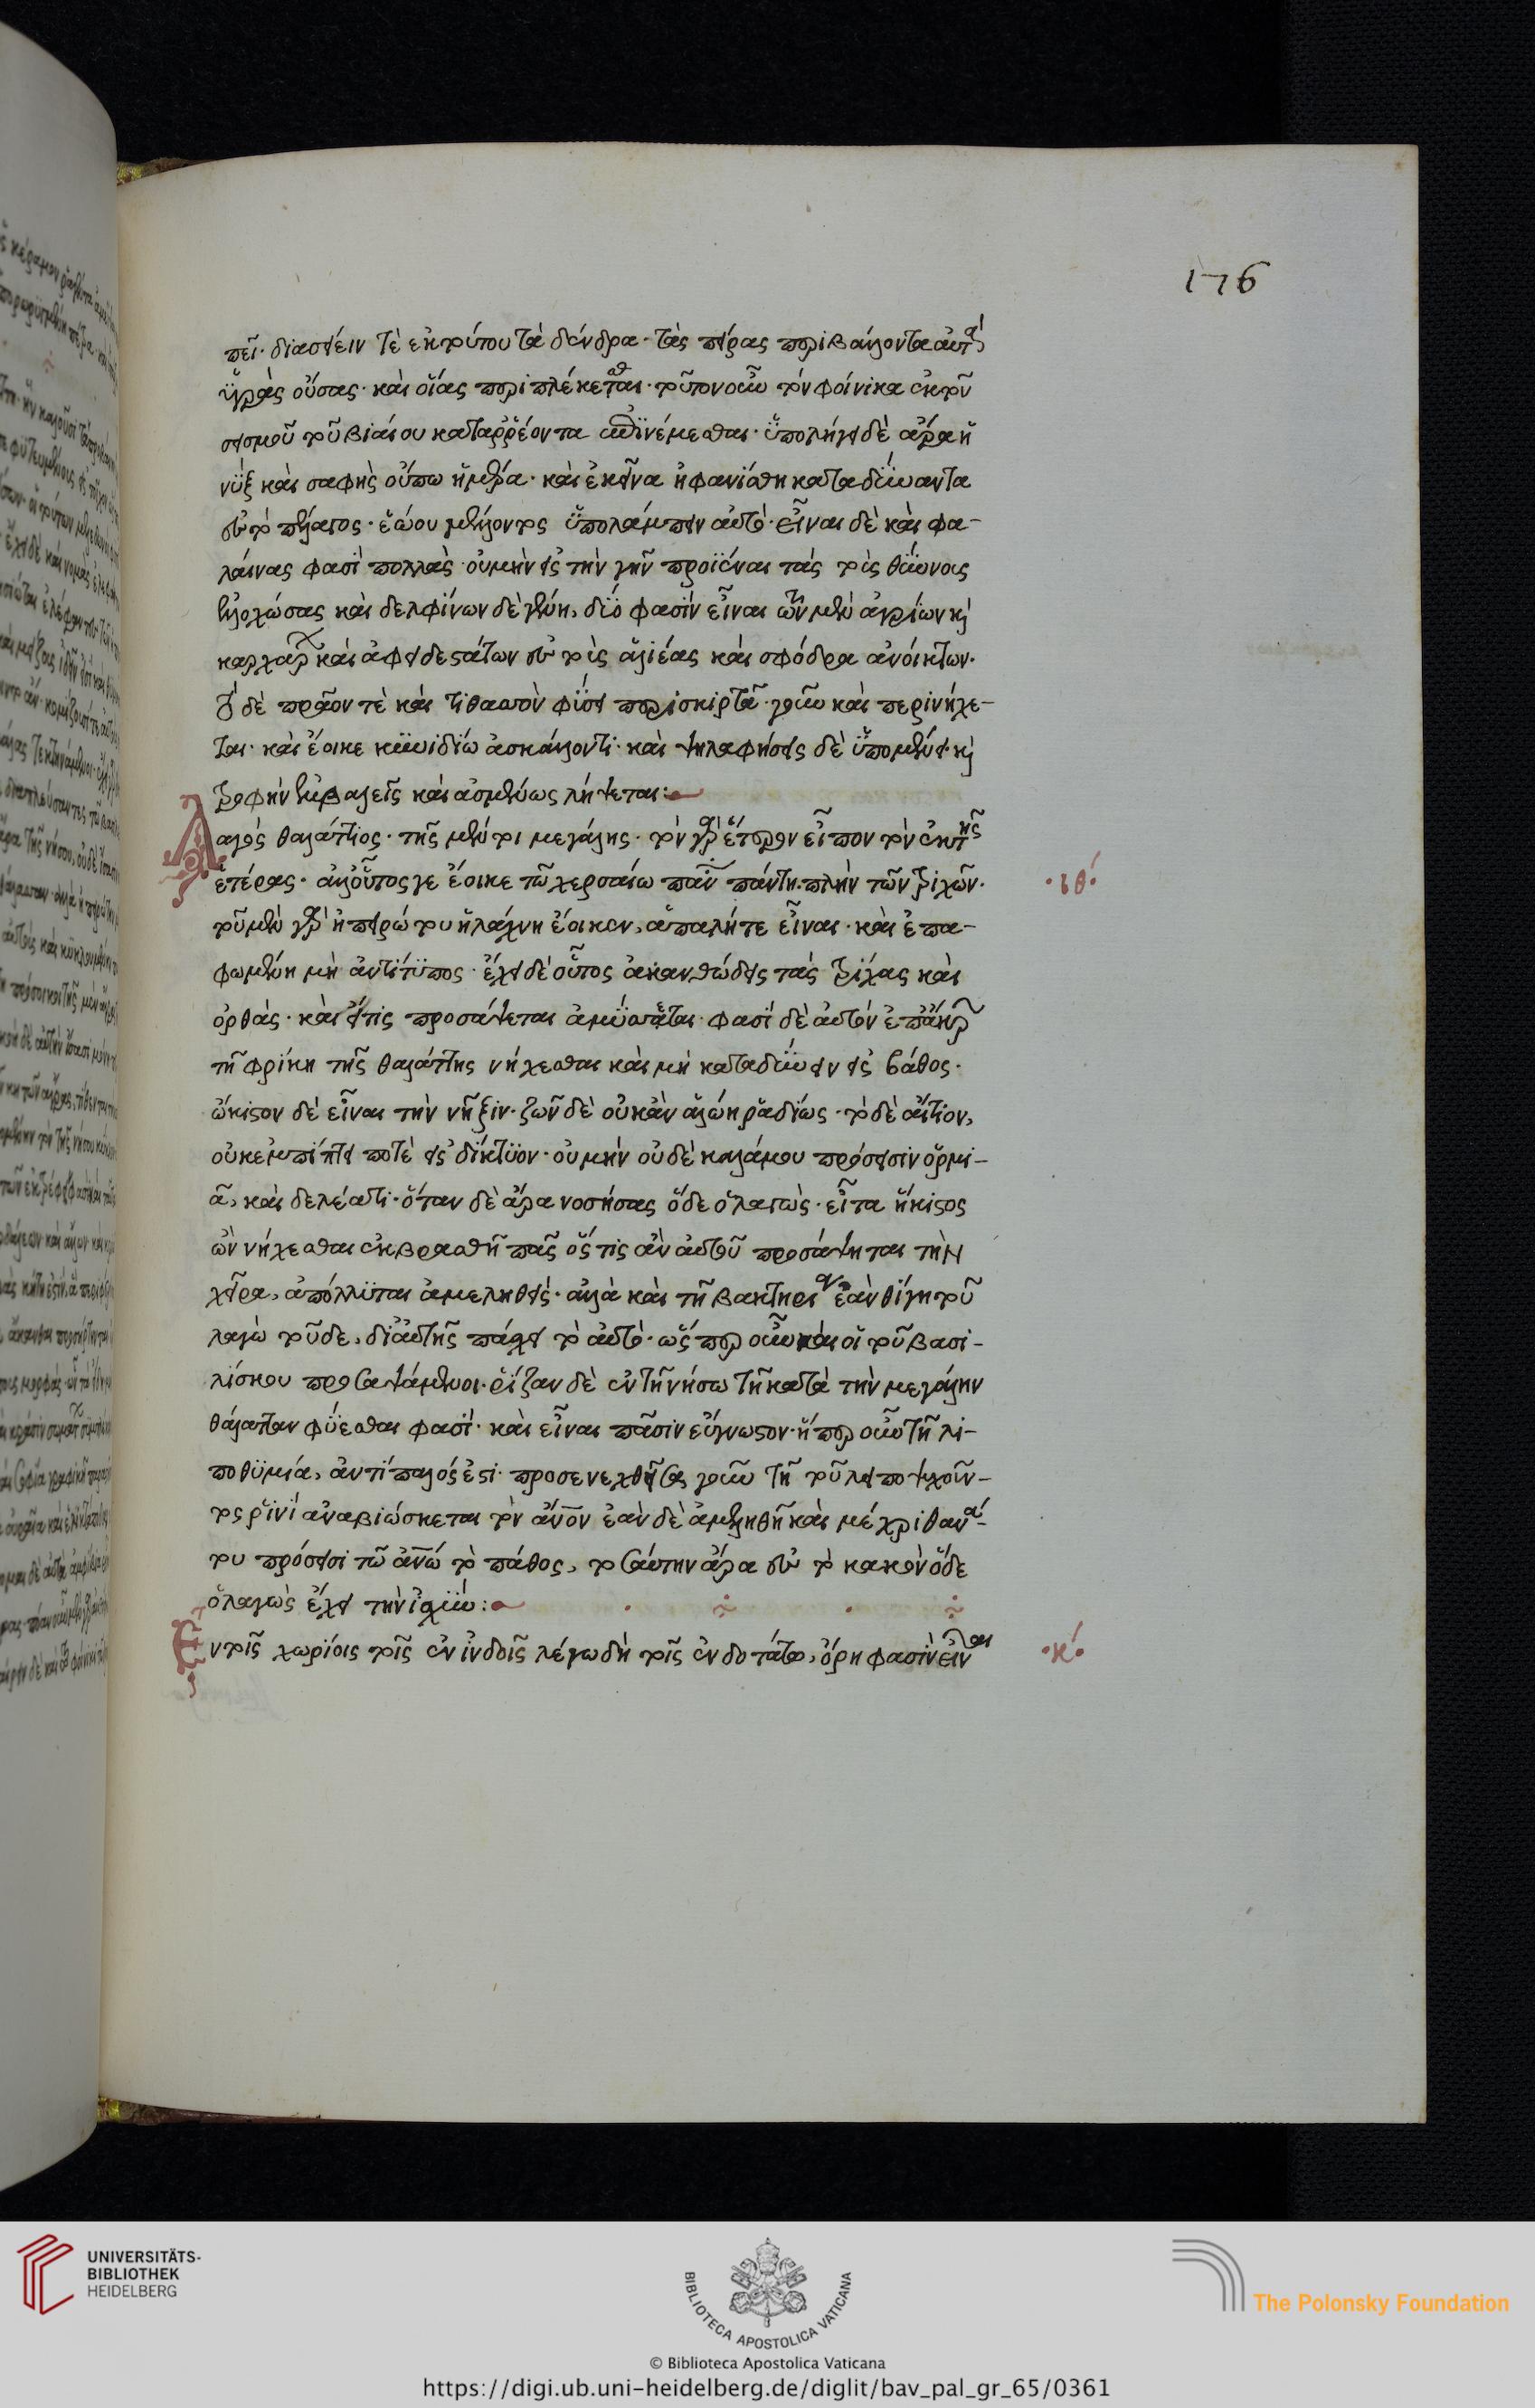 176
πεῖ· διασείειν τὲ ἐκ τούτου τὰ δένδρα· τὰς πτέρας περιβάλλοντα αὐτοῖς
ὑγρὰς οὔσας· καὶ οἵας περιπλέκεσθαι· τοῦτον οὖν τὸν φοίνικα ἐκ τοῦ
σεισμοῦ τοῦ βιαίου καταρρέοντα ἐπινέμεσθαι· ὑπολήγει δὲ ἄρα ἡ
νὺξ καὶ σαφὴς οὔπω ἡμέρα· καὶ ἐκεῖνα ἠφανίσθη καταδύσαντα
εἰς τὸ πέλαγος· ἑώου μέλλοντος ὑπολάμπειν αὐτό· εἶναι δὲ καὶ φα-
λαίνας φασὶ πολλὰς· οὐ μὴν εἰς τὴν γῆν προϊέναι τάς τοὺς θύννους
ἐλλοχώσας καὶ δελφίνων δὲ γένη, διό φασιν εἶναι τῶν μὲν ἀγρίων κὶ
καρχάρων καὶ ἀφειδεστάτων εἰς τοὺς ἁλιέας καὶ σφόδρα ἀνοίκτων·
τὸ δὲ πρᾶον τὲ καὶ τιθασσὸν φύσει περισκιρτᾶ γοῦν καὶ περινήχε-
ται· καὶ ἔοικε κυνιδίω ἀσκάλλοντι· καὶ ψηλαφήσεις δὲ ὑπομένει· κὶ
τροφὴν ἐμβαλεῖς καὶ ἀσμένως λήψεται:
Λαγὸς θαλάττιος· τῆς μέν τοι μεγάλης· τὸν γὰρ ἕτερον εἶπον τὸν ἐκ τῆς
ἑτέρας· ἀλλ οὗτος γε ἔοικε τῶ χερσαίω πᾶν πάντη πλὴν τῶν τριχῶν· ·ιθ·
τοῦ μὲν γὰρ ἠπειρώτου ἡ λάχνη ἔοικεν, ἁπαλή τε εἶναι· καὶ ἐπα-
φωμένη μὴ ἀντίτυπος· ἔχει δὲ οὗτος ἀκανθώδεις τάς τρίχας καὶ
ὀρθάς· καὶ εἴ τις προσάψεται ἀμύσσεται· φασὶ δὲ αὐτὸν ἐπ ἄκρ
τῆ φρίκη τῆς θαλάττης νήχεσθαι καὶ μὴ καταδύνειν εἰς βάθος·
ὤκιστον δὲ εἶναι τὴν νῆξιν· ζῶν δὲ οὐκ ἂν ἁλώη ῥαδίως· τὸ δὲ αἴτιον,
οὐκ ἐμπίπτει ποτὲ εἰς δίκτυον· οὐ μὴν οὐδὲ καλάμου πρόσεισιν ὁρμι-
ᾶ, καὶ δελέατι· ὅταν δὲ ἄρα νοσήσας ὅδε ὁ λαγὼς· εἶτα ἥκιστος
ὢν νήχεσθαι ἐκβρασθῆ πᾶς ὅς τις ἂν αὐτοῦ προσάψηται τὴν
χεῖρα, ἀπόλλυται ἀμεληθείς· ἀλλὰ καὶ τῆ βακτηρία ἐὰν θίγη τοῦ
λαγὼ τοῦδε, δι αὐτῆς πάσχει τὸ αὐτό· ὥς περ οὖν καὶ οἱ τοῦ βασι-
λίσκου προσαψάμενοι· ῥίζαν δὲ ἐν τῆ νήσω τῆ κατὰ τὴν μεγάλην
θάλατταν φύεσθαι φασί· καὶ εἶναι πᾶσιν εὔγνωστον· ἥ περ οὖν τῆ λι-
ποθυμία, ἀντίπαλός ἐστι· προσενεχθεῖσα γοῦν τῆ τοῦ λειποψυχοῦν-
τος ῥινὶ ἀναβιώσκεται τὸν ἄνον ἐὰν δὲ ἀμεληθῆ καὶ μέχρι θανά-
του πρόσεισι τῶ ἀνῶ τὸ πάθος, τοσαύτην ἄρα εἰς τὸ κακὸν ὅδε
ὁ λαγὼς ἔχει τὴν ἰσχὺν:
Ἐν τοῖς χωρίοις τοῖς ἐν ἰνδοῖς λέγω δὴ τοῖς ἐνδοτάτω, ὄρη φασὶν εἶναι ·κ·
UNIVERSITÄTS-
BIBLIOTHEK
HEIDELBERG
BIBLIOTECA APOSTOLICA VATICANA
The Polonsky Foundation
© Biblioteca Apostolica Vaticana
https://digi.ub.uni-heidelberg.de/diglit/bav_pal_gr_65/0361